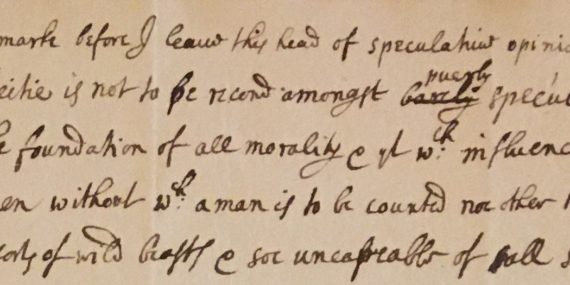 marke before I leave this head of speculative opinio
eitie is not to be recond amongst barely purely specul
e foundation of all morality & yt wch influenc
en without wch a man is to be counted noe other
sorts of wild beasts & soe uncapeable of all s